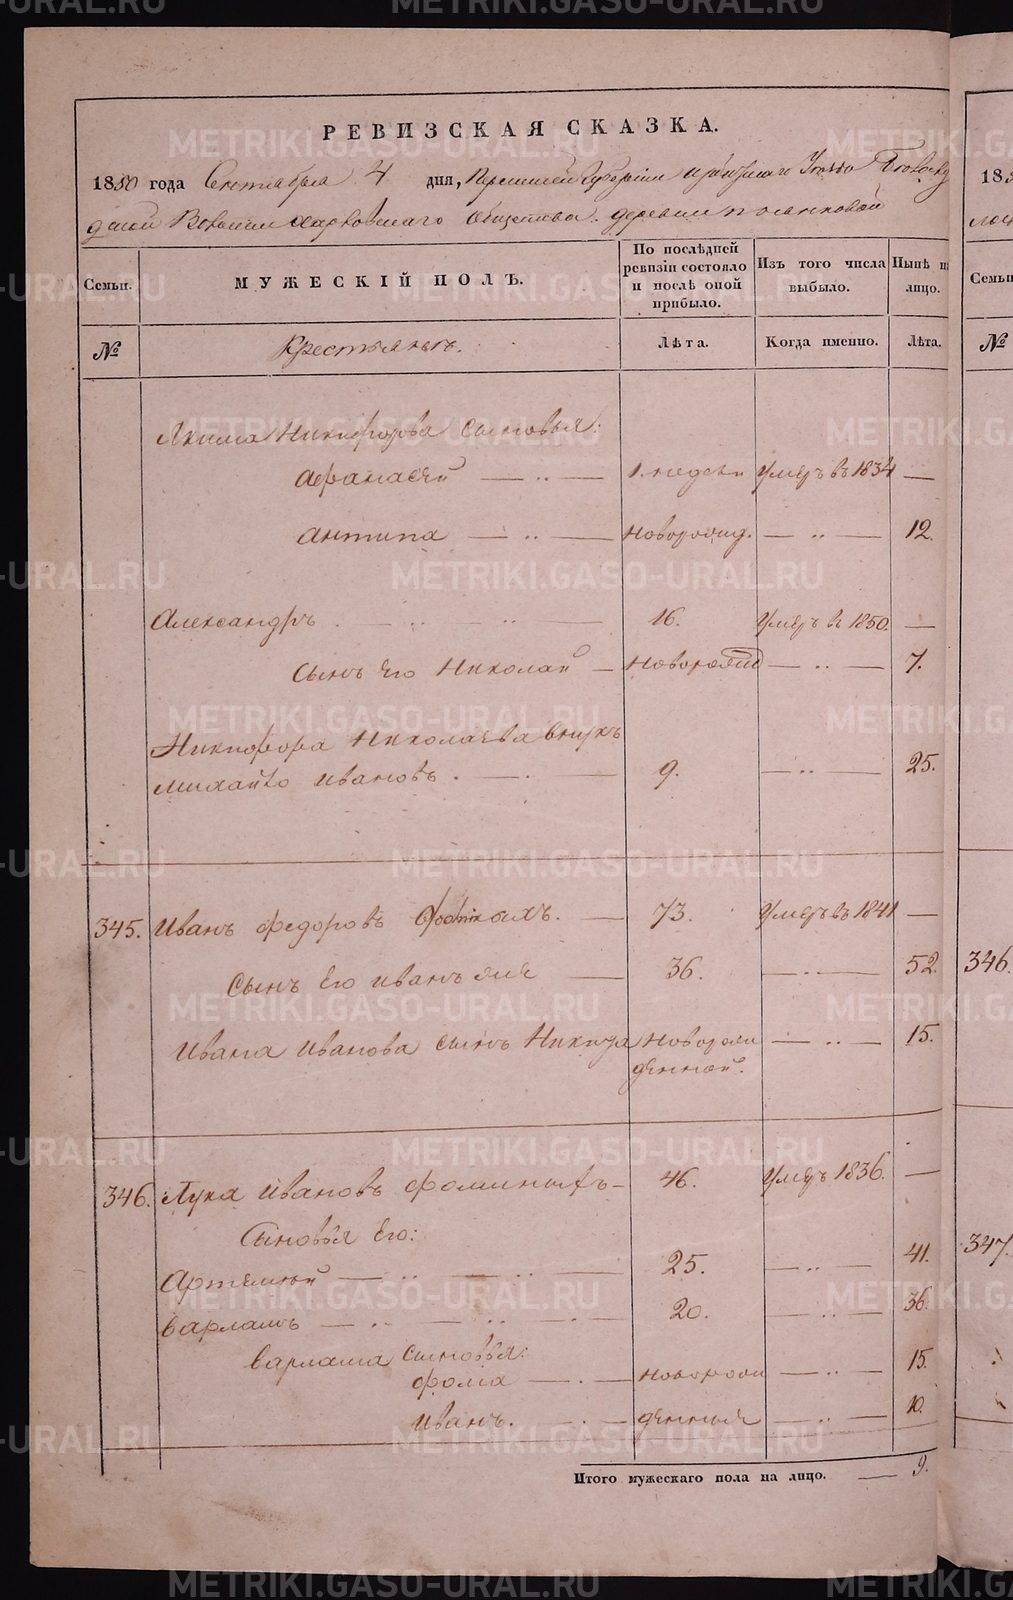 РЕВИЗСКАЯ СКАЗКА.
1850 года Сентября 4 дня, Пермской Губернии Уезда
Волости Общества. деревни
Семьи. МУЖЕСКІЙ ПОЛЪ. По послѣдней ревизіи состояло и послѣ оной прибыло. Изъ того числа выбыло. Нынѣ на лицо.
№ Крестьянъ. Лѣта. Когда именно. Лѣта.
Якима Никифорова сыновья:
Афанасей 1. недели Умеръ въ 1834 —
Антипа новорожд. — 12.
Александръ 16. Умеръ въ 1850. —
Сынъ Его Николай новорожд — 7.
Никифора Николаева внукъ
Михайло Ивановъ. 9. — 25.
345. Иванъ Федоровъ 73. Умеръ въ 1841 —
Сынъ Его Иванъ 36. — 52.
Ивана Иванова сынъ Никита новорож — 15.
денной.
346. Лука Ивановъ Фоминыхъ 46. Умеръ 1836. —
Сыновья Его:
Артемий 25. — 41.
Варламъ 20. — 36.
Варлама сыновья:
Фома новорож — 15.
Иванъ. денныя — 10.
Итого мужескаго пола на лицо. — 9.
183
Семьи
№
346.
347.
METRIKI.GASO-URAL.RU